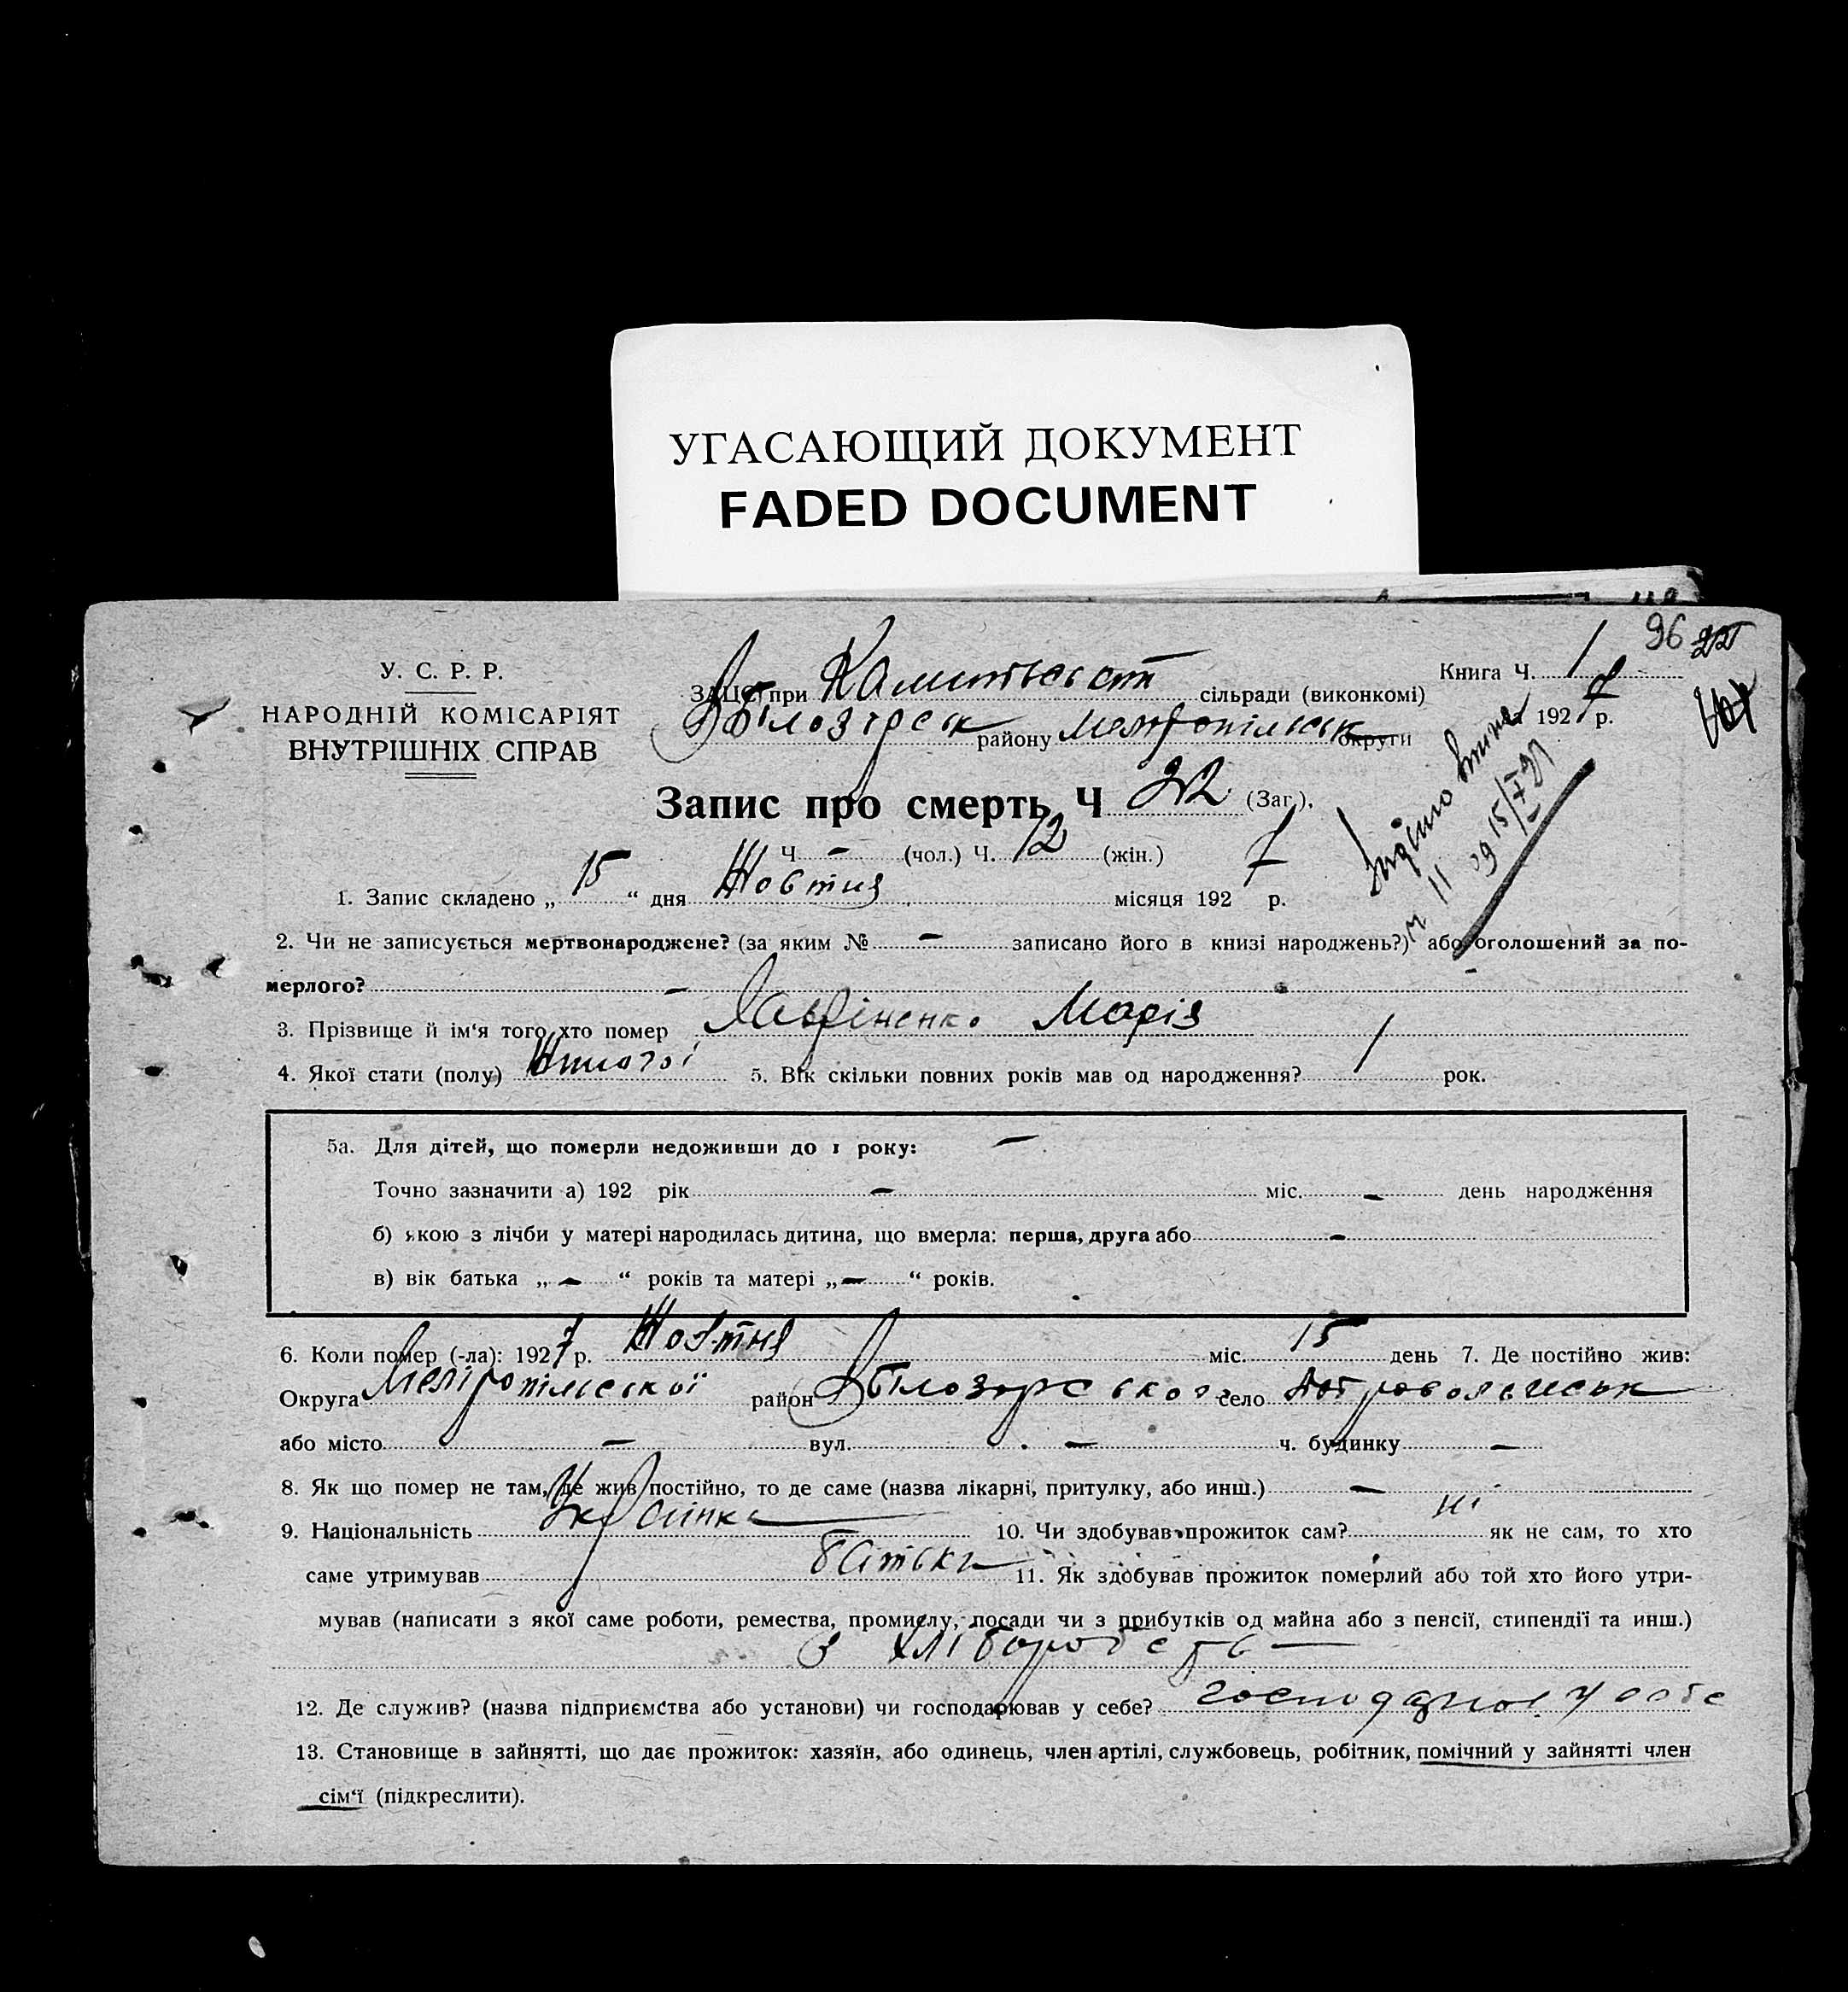 УГАСАЮЩИЙ ДОКУМЕНТ
FADED DOCUMENT
96
У. С. Р. Р.
НАРОДНІЙ КОМІСАРІЯТ
ВНУТРІШНІХ СПРАВ
ЗАЦС при сільради (виконкомі)
Книга Ч. 1
району округи
1927 р.
Запис про смерть Ч 22 (Заг.),
Ч. – (чол.) Ч. 12 (жін.)
1. Запис складено „ 15 “ дня Жовтня місяця 1927 р.
2. Чи не записується мертвонароджене? (за яким № – записано його в книзі народжень?) або оголошений за по-
мерлого? –
3. Прізвище й ім‘я того, хто помер Лавріненко Марія
4. Якої стати (полу) 5. Вік скільки повних років мав од народження? 1 рок.
5а. Для дітей, що померли недоживши до 1 року: –
Точно зазначити а) 192 рік – міс. – день народження
б) якою з лічби у матері народилась дитина, що вмерла: перша, друга або –
в) вік батька „ – “ років та матері „ – “ років.
6. Коли помер (-ла): 1927 р. Жовтня міс. 15 день 7. Де постійно жив:
Округа район село
або місто – вул. – ч. будинку –
8. Як що помер не там, де жив постійно, то де саме (назва лікарні, притулку, або инш.) –
9. Національність Українка 10. Чи здобував прожиток сам? ні як не сам, то хто
саме утримував батьки 11. Як здобував прожиток померлий або той хто його утри-
мував (написати з якої саме роботи, ремества, промислу, посади чи з прибутків од майна або з пенсії, стипендії та инш.)
з
12. Де служив? (назва підприємства або установи) чи господарював у себе?
13. Становище в зайнятті, що дає прожиток: хазяїн, або одинець, член артілі, службовець, робітник, помічний у зайнятті член
сім‘ї (підкреслити).